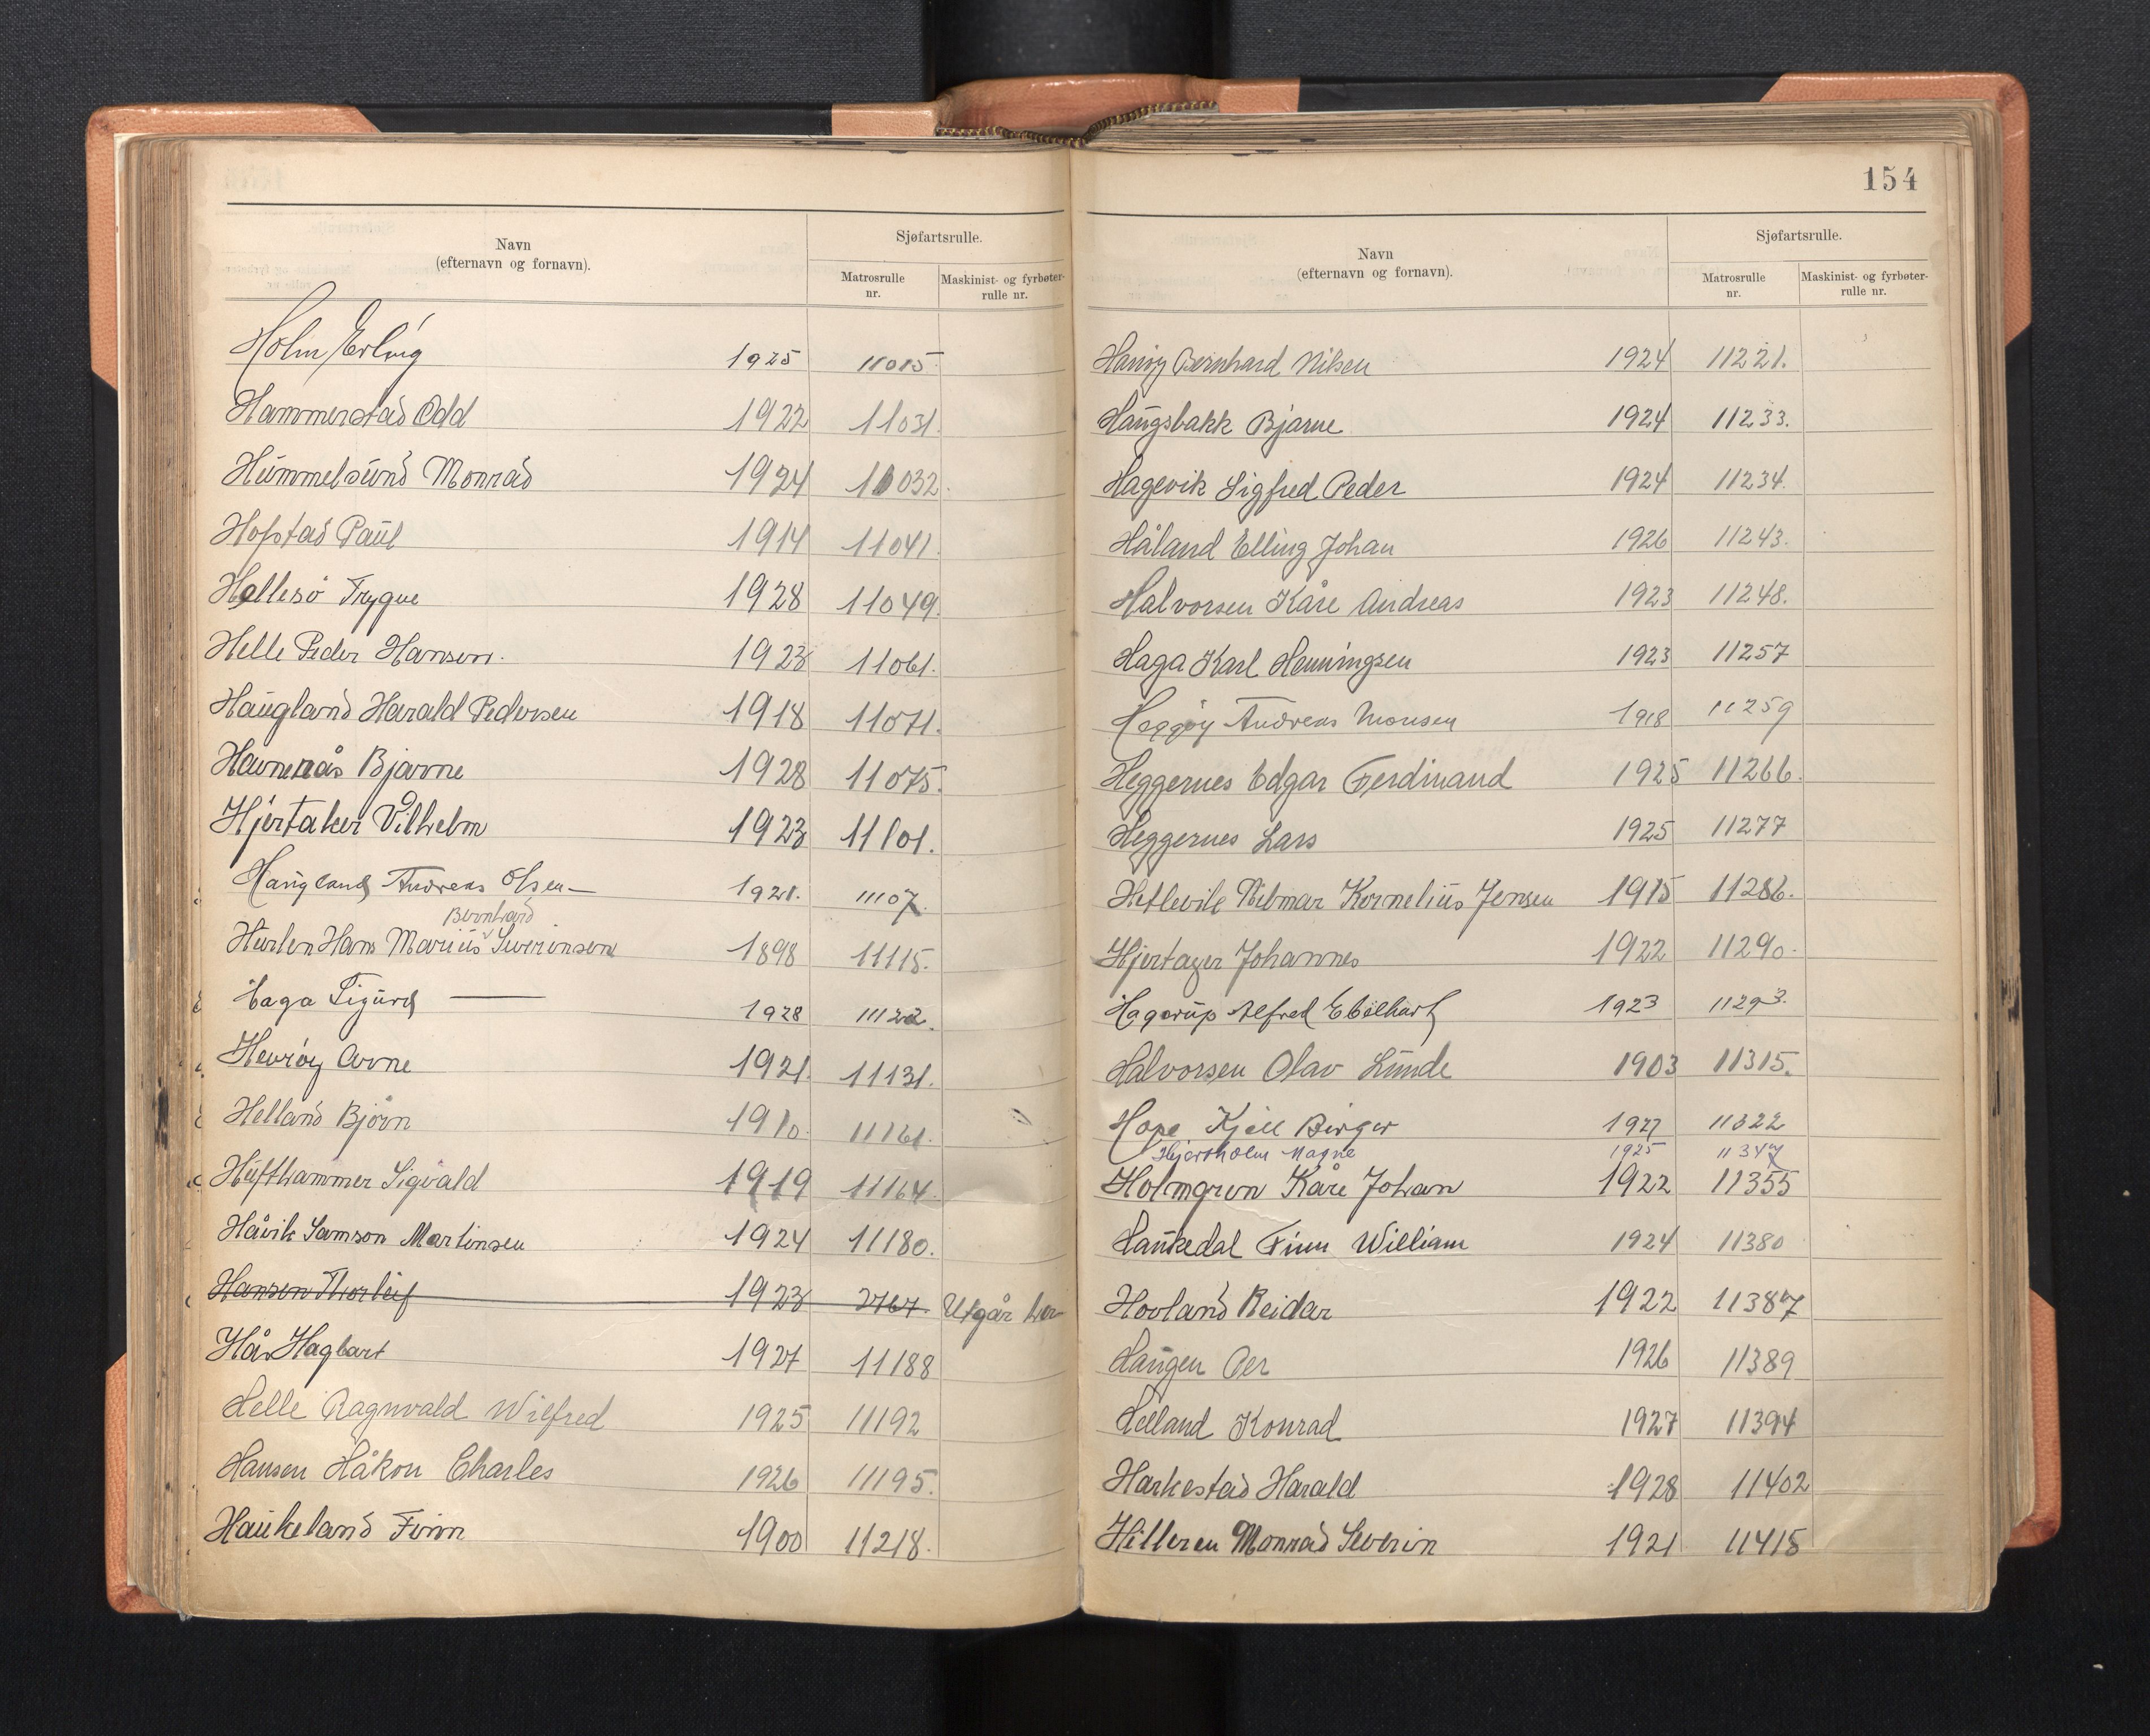 Navn
(efternavn og fornavn).
Sjøfartsrulle.
Matrosrulle
nr.
Maskinist- og fyrbøter-
rulle nr.
Holm Erling 1925 11015
Hammerstad Odd 1922 11031.
Hummelsund Monrad 1924 11032.
Hofstad Paul 1914 11041.
Hellesø Trygve 1928 11049.
Helle Peder Hansen. 1923 11061.
Haugland Harald Pedersen 1918 11071.
Havnerås Bjarne 1928 11075.
Hjertaker Vilhelm 1923 11101.
Haugland Andreas Olsen — 1921. 11107.
Bernhard
Hurlen Hans Marius Severinsen 1898 11115.
Haga Sigurd — 1928 11122.
Hevrøy Arne 1921. 11131.
Helland Bjørn 1910. 11161.
Hufthammer Sigvald 1919 11164.
Håvik Samson Martinsen 1924 11180.
Hansen Thorleif 1923 2767 Utgår her
Hår Hagbart 1927 11188
Helle Ragnvald Wilfred 1925 11192
Hansen Håkon Charles 1926 11195.
Haukeland Finn 1900 11218.
154
Navn
(efternavn og fornavn).
Sjøfartsrulle.
Matrosrulle
nr.
Maskinist- og fyrbøter-
rulle nr.
Hanøy Bernhard Nilsen 1924 11221.
Haugsbakk Bjarne 1924 11233.
Hagevik Sigfred Peder 1924 11234.
Håland Elling Johan 1926 11243.
Halvorsen Kåre Andreas 1923 11248.
Haga Karl Henningsen 1923 11257
Heggøy Andreas Monsen 1918 11259
Heggernes Edgar Ferdinand 1925 11266.
Heggernes Lars 1925 11277
Hetlevik Hilmar Kornelius Jensen 1915 11286.
Hjertager Johannes 1922 11290.
Hagerup Alfred 1923 11293.
Halvorsen Olav Lunde 1903 11315.
Hope Kjell Birger 1927 11322
Hjersholm Magne 1925 11347
Holmgren Kåre Johan 1922 11355
Haukedal Finn William 1924 11380
Hovland Reidar 1922 11387
Haugen Per 1926 11389
Helland Konrad 1927 11394
Harkestad Harald 1928 11402
Hilleren Monrad Severin 1921 11415